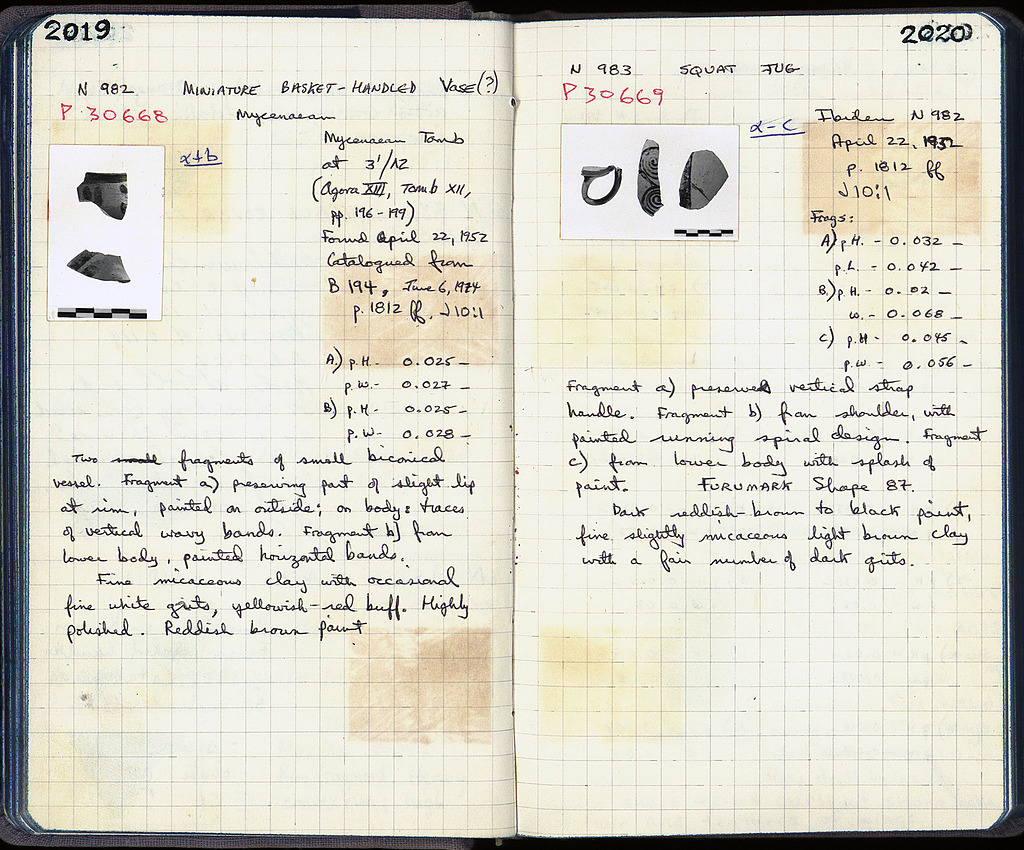 2019
N 982 MINIATURE BASKET-HANDLED VASE(?)
P 30668 Mycenaean
a+b
Mycenaean Tomb
at 3'/ΛΖ
(Agora XIII, Tomb XII,
pp. 196-199)
Found April 22, 1952
Catalogued from
B 194, June 6, 1974
p. 1812 ff, J 10:1
A.) p.H. - 0.025 -
p.w. - 0.027 -
B) p.H - 0.025 -
p.w - 0.028 -
Two small fragments of small biconical
vessel. Fragment a) preserving part of slight lip
at rim, painted on outside; on body: traces
of vertical wavy bands. Fragment b) from
lower body, painted horizontal bands.
Fine micaceous clay with occasional
fine white grits, yellowish-red buff. Highly
polished. Reddish brown paint
2020
N 983 SQUAT JUG
P 30669
a-c
Ibidem N 982
April 22, 1952
p. 1812 ff
J 10:1
Frags:
A) p.H. - 0.032 -
p.L. - 0.042 -
B.) p.H. - 0.02 -
w. - 0.068 -
C) p.H - 0.045 -
p.w. - 0.056 -
Fragment a) preserves vertical strap
handle. Fragment b) from shoulder, with
painted running spiral design. Fragment
c) from lower body with splash of
paint. FURUMARK Shape 87.
Dark reddish-brown to black paint,
fine slightly micaceous light brown clay
with a fair number of dark grits.